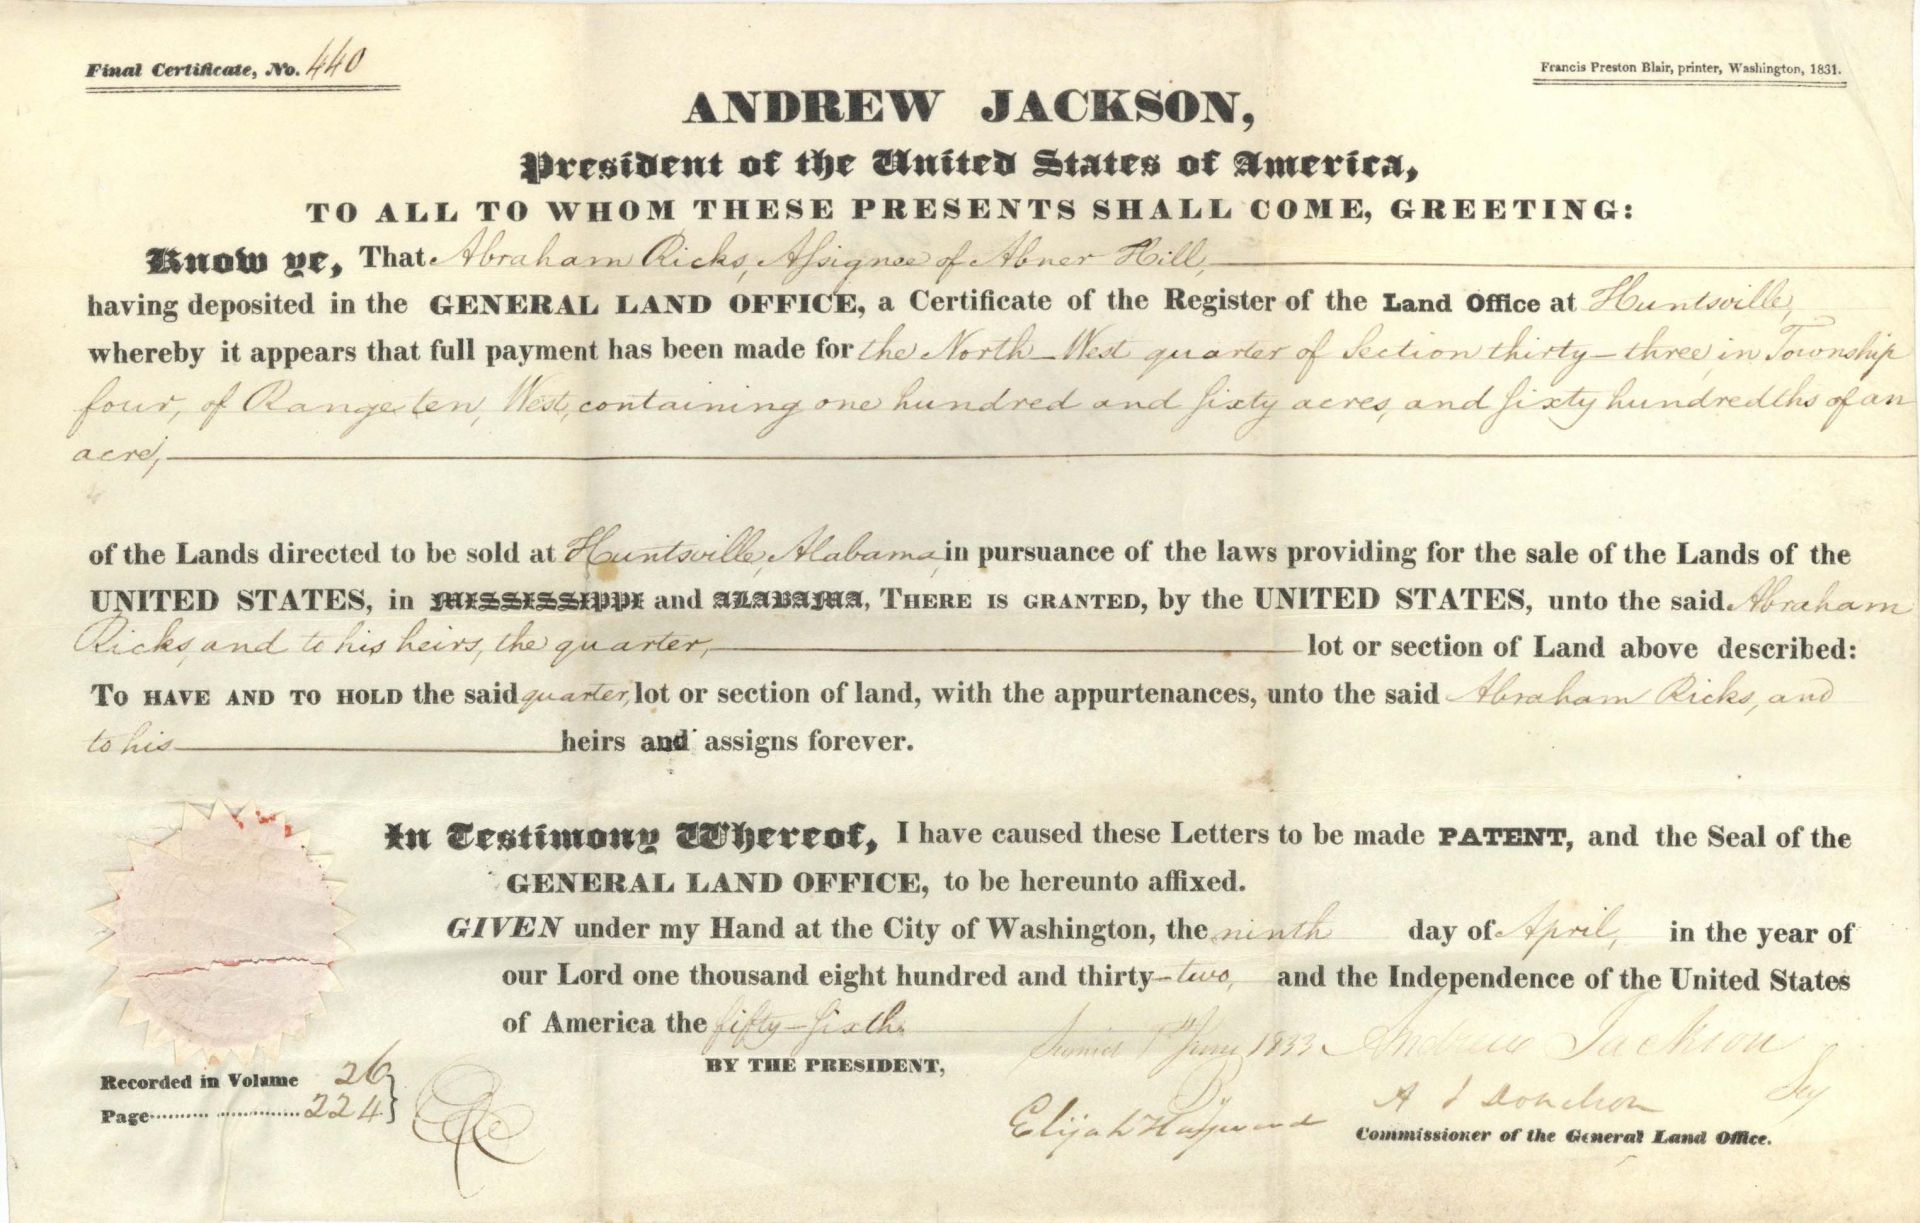 Final Certificate, No. 440
Francis Preston Blair, printer, Washington, 1831.
ANDREW JACKSON,
President of the United States of America,
TO ALL TO WHOM THESE PRESENTS SHALL COME, GREETING:
Know ye, That Abraham Ricks, Assignee of Abner Hill,
having deposited in the GENERAL LAND OFFICE, a Certificate of the Register of the Land Office at Huntsville,
whereby it appears that full payment has been made for the North West quarter of Section thirty-three, in Township
four, of Range ten, West, containing one hundred and sixty acres, and sixty hundredths of an
acre,
of the Lands directed to be sold at Huntsville, Alabama, in pursuance of the laws providing for the sale of the Lands of the
UNITED STATES, in MISSISSIPPI and ALABAMA, THERE IS GRANTED, by the UNITED STATES, unto the said Abraham
Ricks, and to his heirs, the quarter, lot or section of Land above described:
TO HAVE AND TO HOLD the said quarter, lot or section of land, with the appurtenances, unto the said Abraham Ricks, and
to his heirs and assigns forever.
In Testimony Whereof, I have caused these Letters to be made PATENT, and the Seal of the
GENERAL LAND OFFICE, to be hereunto affixed.
GIVEN under my Hand at the City of Washington, the ninth day of April, in the year of
our Lord one thousand eight hundred and thirty-two, and the Independence of the United States
of America the fifty-sixth.
1833 Andrew Jackson
BY THE PRESIDENT,
By
A J Donelson Sey
Recorded in Volume 26
Page 224
Elijah Hayward
Commissioner of the General Land Office.